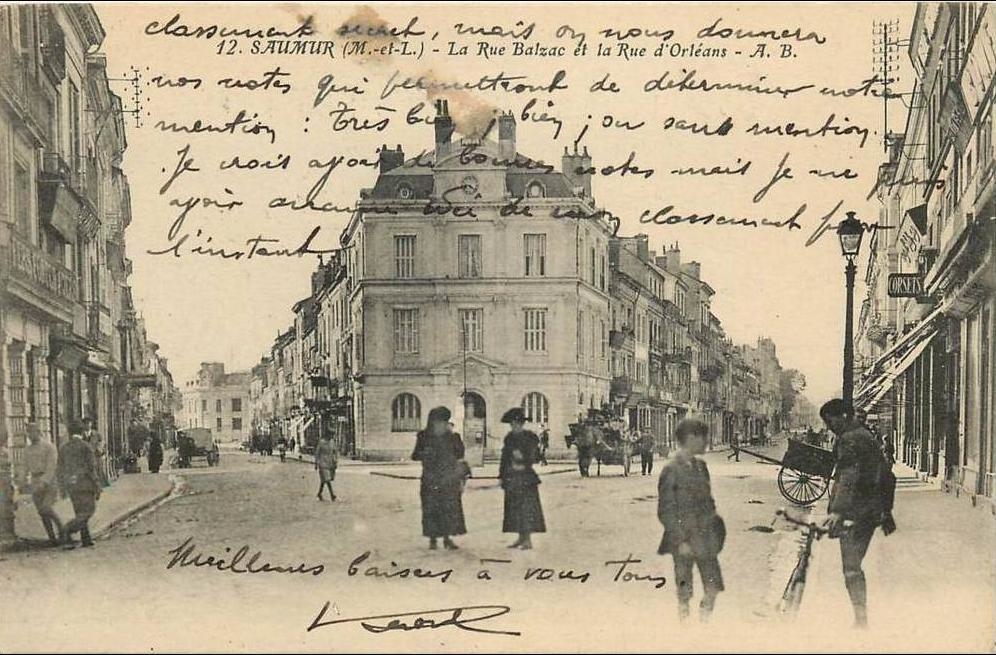 classement secret, mais on nous donnera
12. SAUMUR (M.-et-L.) - La Rue Balzac et la Rue d'Orléans - A. B.
nos notes qui permettront de déterminer notre
mention : Très bien, bien ; ou sans mention.
Je crois avoir de bonnes notes mais je ne puis
avoir aucune idée de mon classement pour
l'instant
CORSETS
Meilleurs baisers à vous tous